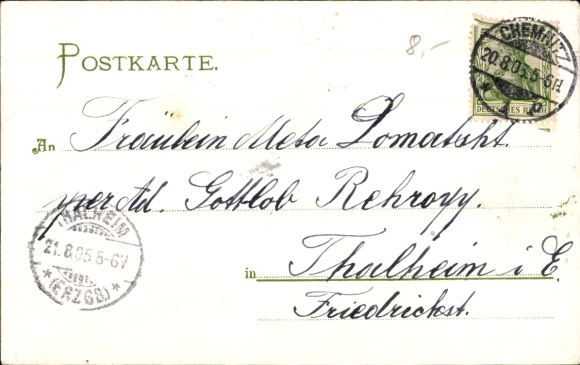 8,-
POSTKARTE.
CHEMNITZ
20.8.05.5-6N
DEUTSCHES REICH
An Fräulein Meta
per Ad. Gottlob
THALHEIM
21.8.05.5-6V
*(ERZGB)*
in Thalheim i. E.
Friedrichst.